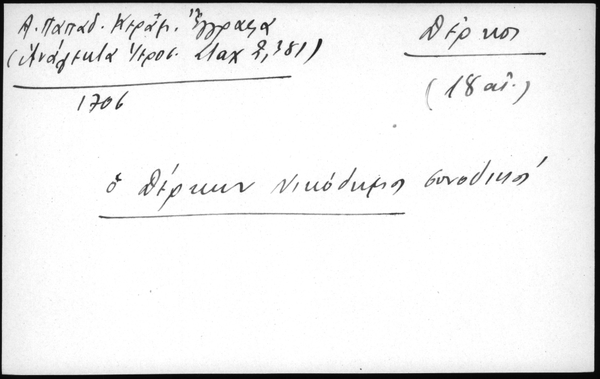 Α. Παπαδ. Κεράμ. Ἔγγραφα
(Ἀνάλεκτα Ἱεροσ. Σταχ 2, 381)
1706
Δέρκοι
(18 αἰ.)
ὁ Δέρκων Νικόδημος συνοδικός